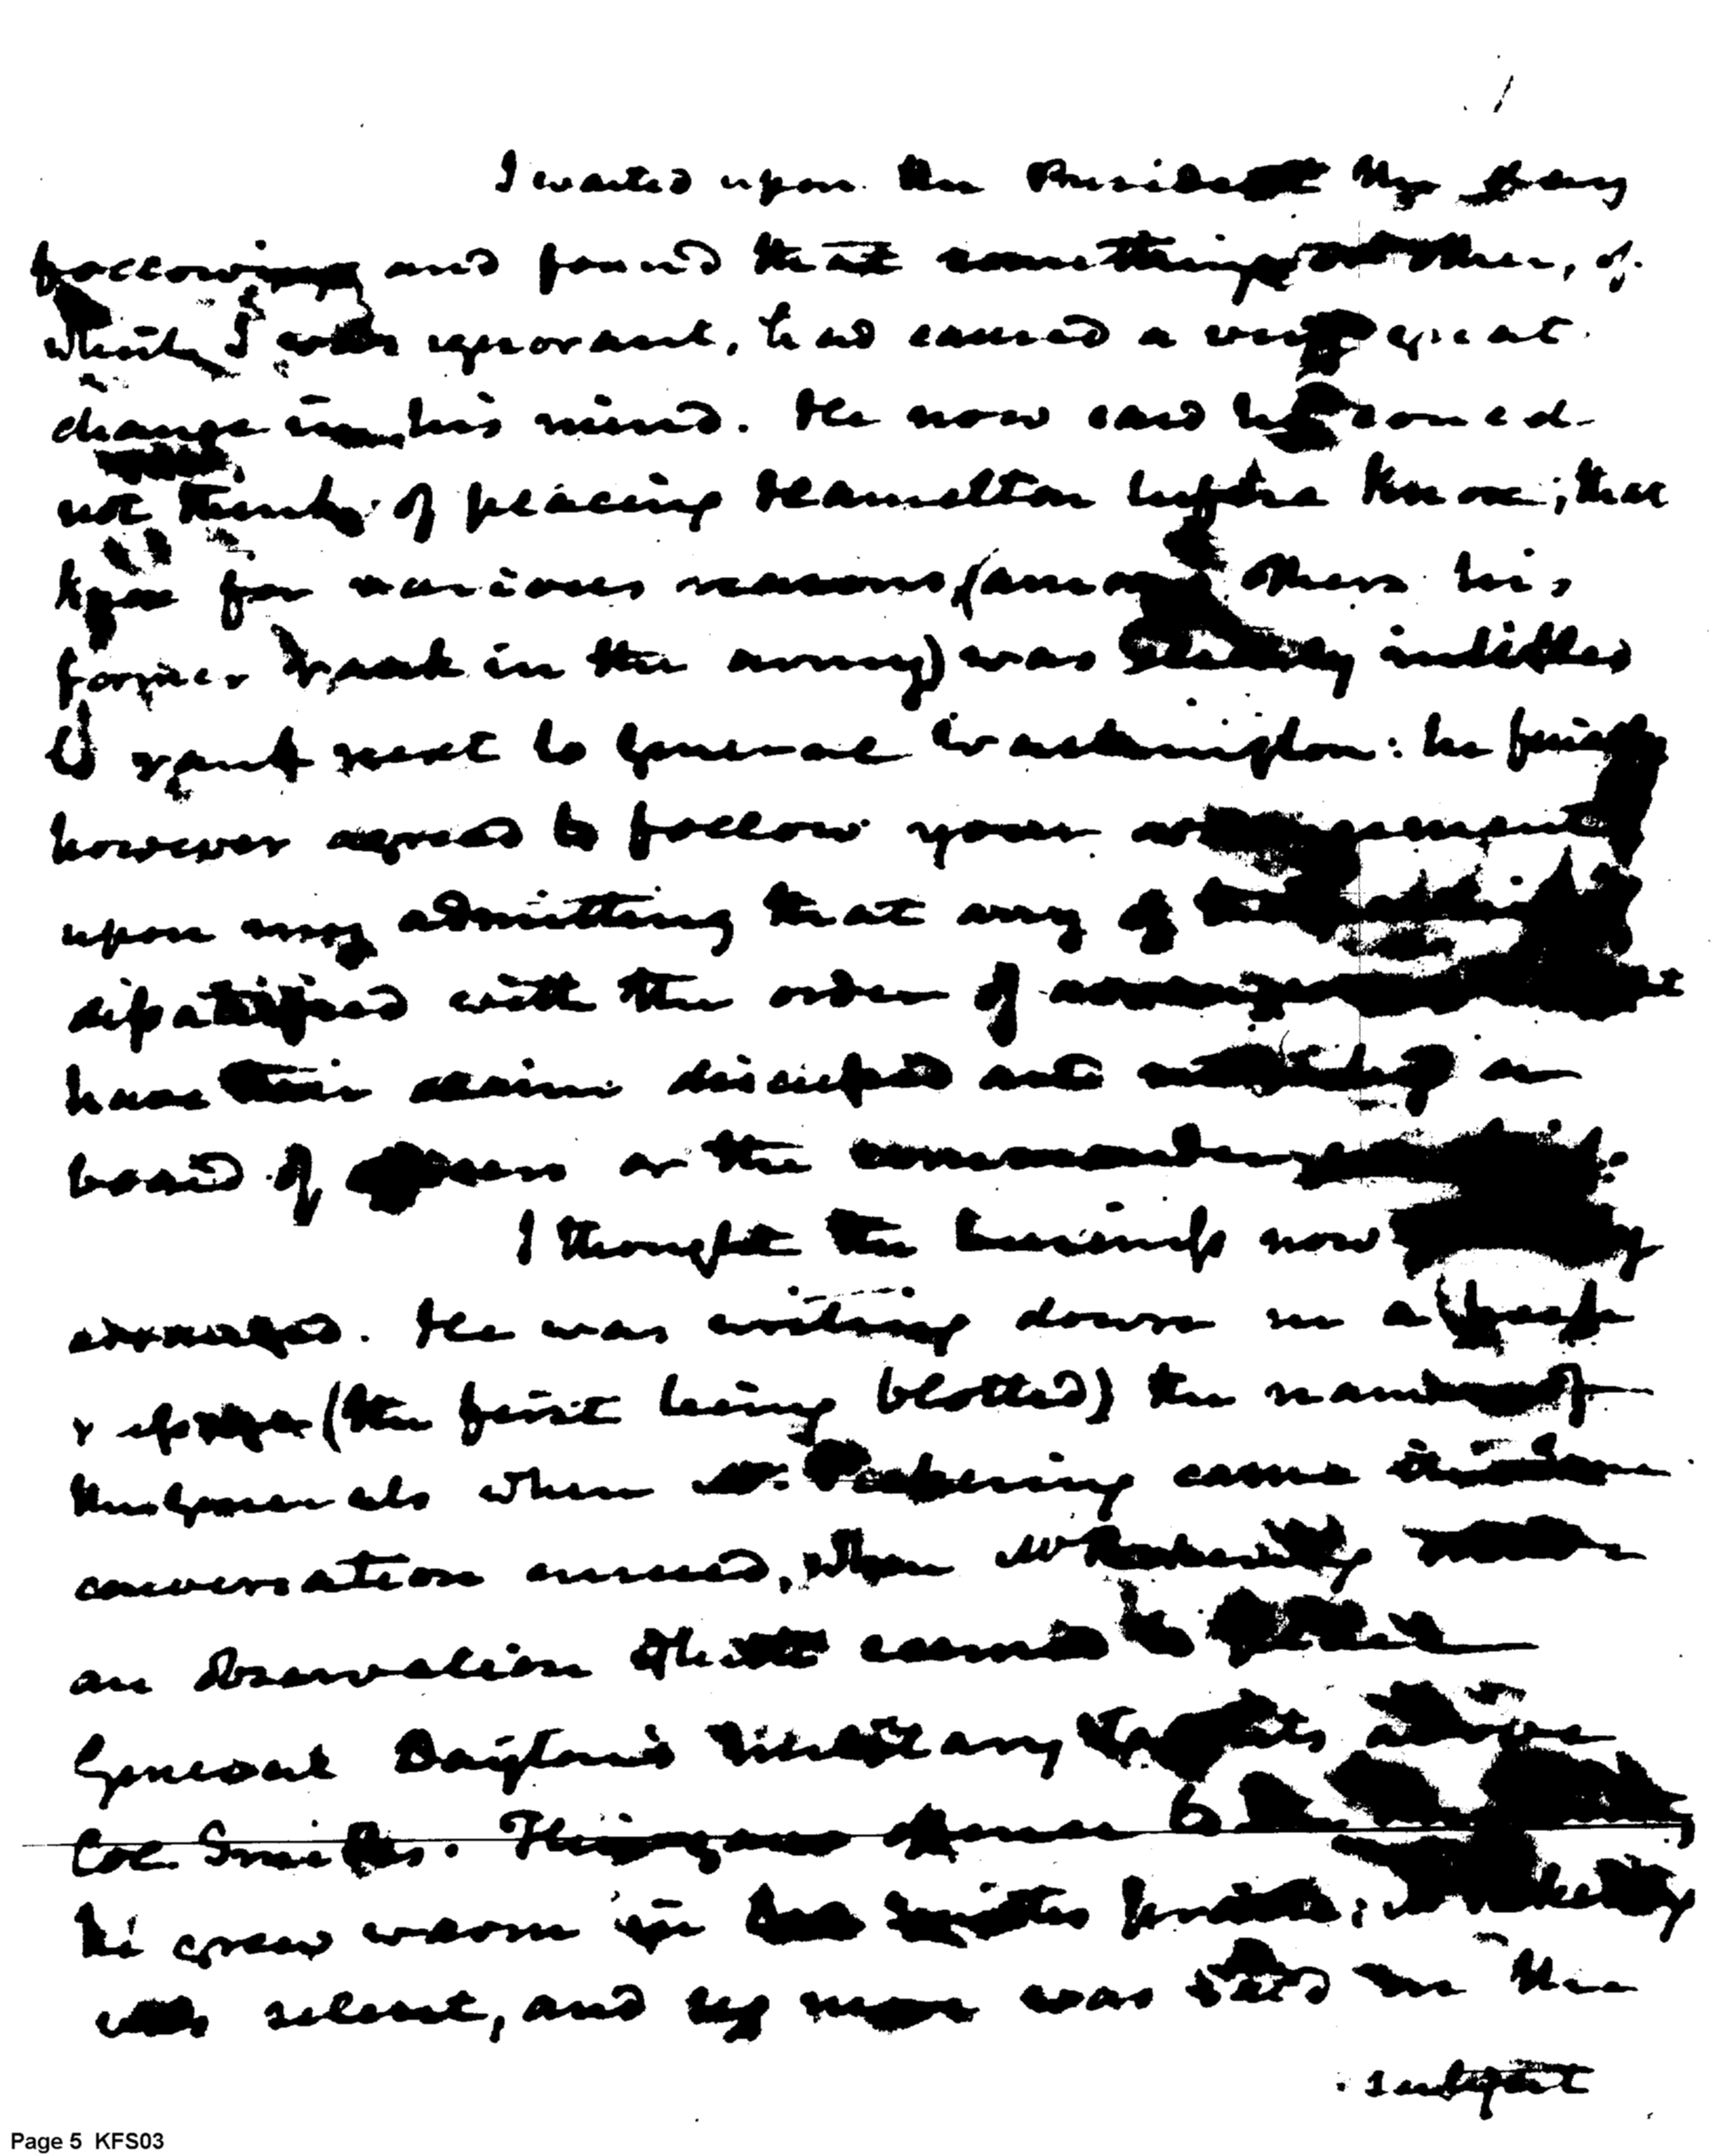 I waited upon the President the day
following and found that something or other, of
which I was ignorant, had caused a very great
change in his mind. He now said he could
not think of placing Hamilton before Knox; that
Knox for various reasons (among others his
former rank in the army) was entitled
to rank next to General Washington: he finally
however agreed to follow your arrangement
upon my admitting that any of
dissatisfied with the order of arrangement might
have their claims discussed and settled by a
board of officers or the commander in chief.
I thought the business now
arranged. He was writing down on a fresh
message (the first being blotted) the names of
the generals when Mr. Pickering came in. Some
conversation ensued, when McHenry made
an observation that seemed to
General Dayton's military
Col Smiths.
he grew warm in Smiths praise: McHenry
was silent, and no more was said on the
subject
Page 5 KFS03